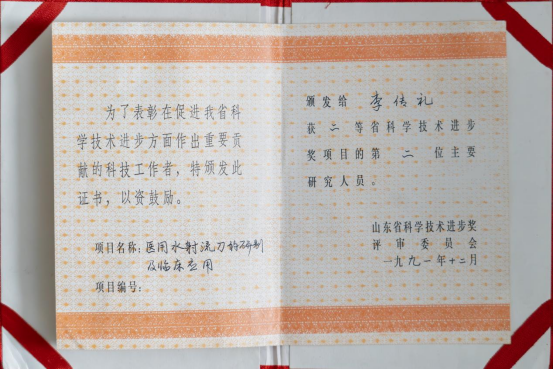 为了表彰在促进我省科
学技术进步方面作出重要贡
献的科技工作者，特颁发此
证书，以资鼓励。
项目名称：医用水射流刀的研制
及临床应用
项目编号：
颁发给 李传礼
获二等省科学技术进步
奖项目的第二位主要
研究人员。
山东省科学技术进步奖
评审委员会
一九九一年十二月